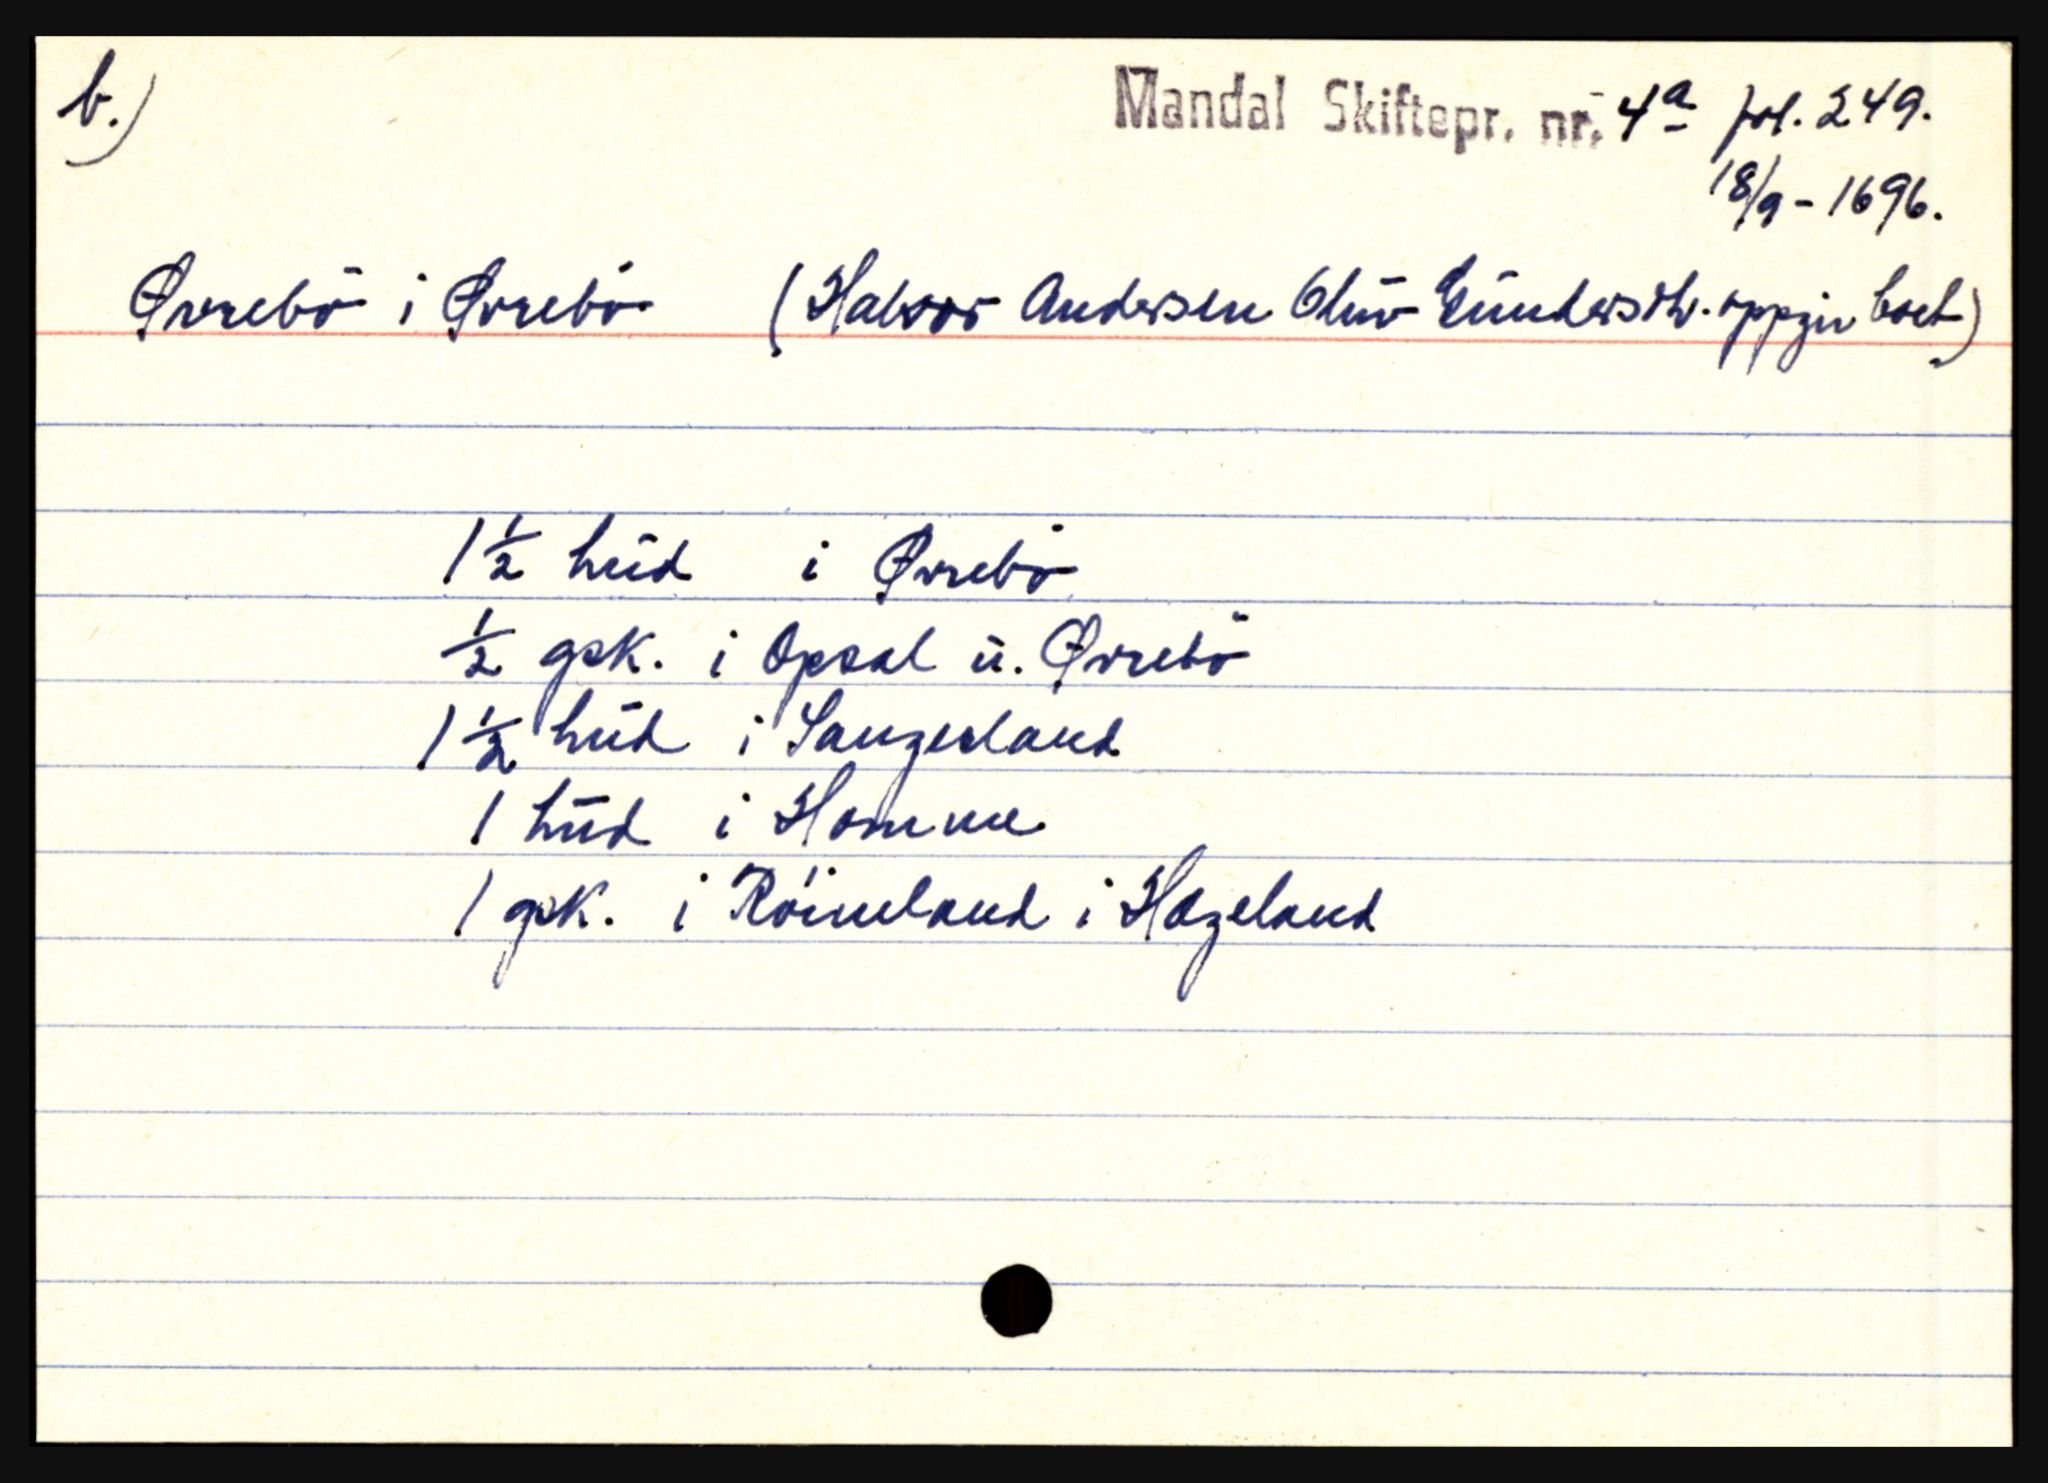 b.)
Mandal Skiftepr. nr. 4a fol. 249.
18/9 - 1696.
Øvrebö i Øvrebö (Halvor Andersen Oluv Gundersdtr. oppgir boet)
1 1/2 hud i Øvrebö
1/2 gsk. i Opsal u. Øvrebö
1 1/2 hud i Sangesland
1 hud i Homme
1 gsk. i Röineland i Hægeland